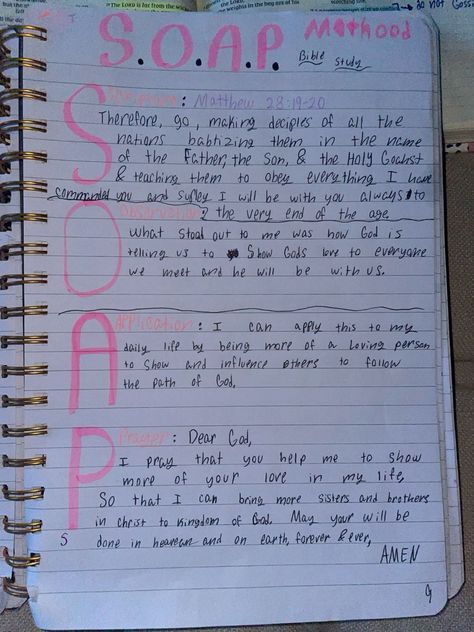 S.O.A.P. Mathood
Bible Study
Scripture: Matthew 28:19-20
Therefore, go, making deciples of all the
nations babtizing them in the name
of the Father, the Son, & the Holy Goahst
& teaching them to obey everything I have
commanded you and surley I will be with you always to
Observation: the very end of the age.
What stood out to me was how God is
telling us to show Gods love to everyone
we meet and he will be with us.
Application: I can apply this to my
daily life by being more of a loving person
to show and influence others to follow
the path of God.
Prayer: Dear God,
I pray that you help me to show
more of your love in my life,
So that I can bring more sisters and brothers
in Christ to Kingdom of God. May your will be
S done in heavean and on earth, forever & ever,
AMEN